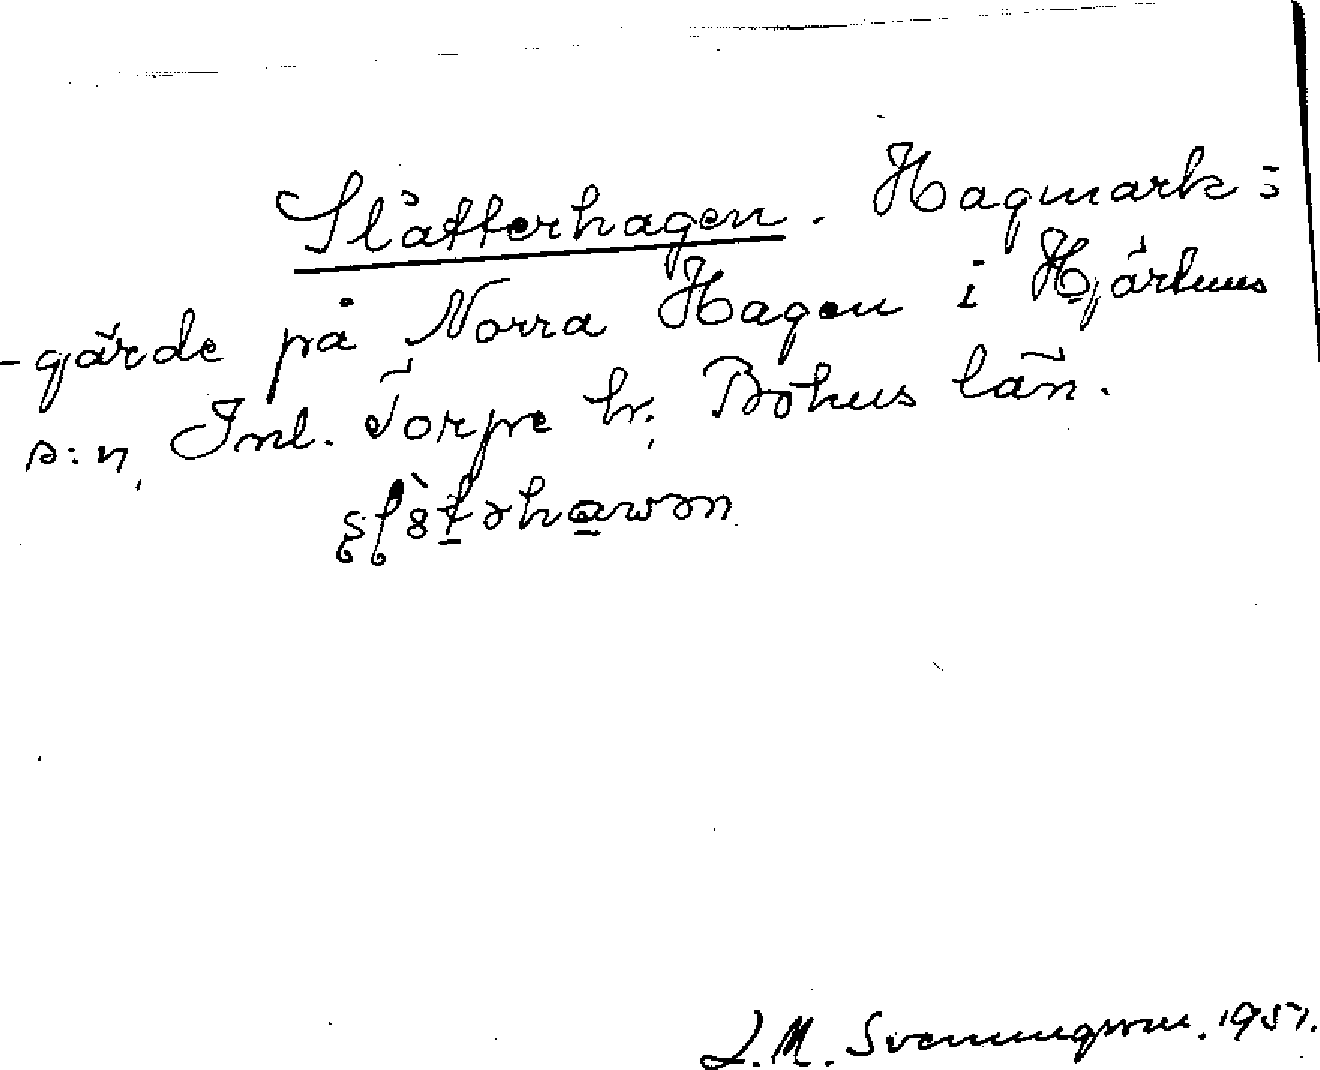 Slåtterhagen. Hagmark i
-gärde på Norra Hagen i Hjärtums
s:n, Inl. Torpe hr. Bohus län.
L. M. Svenungsson. 1951.